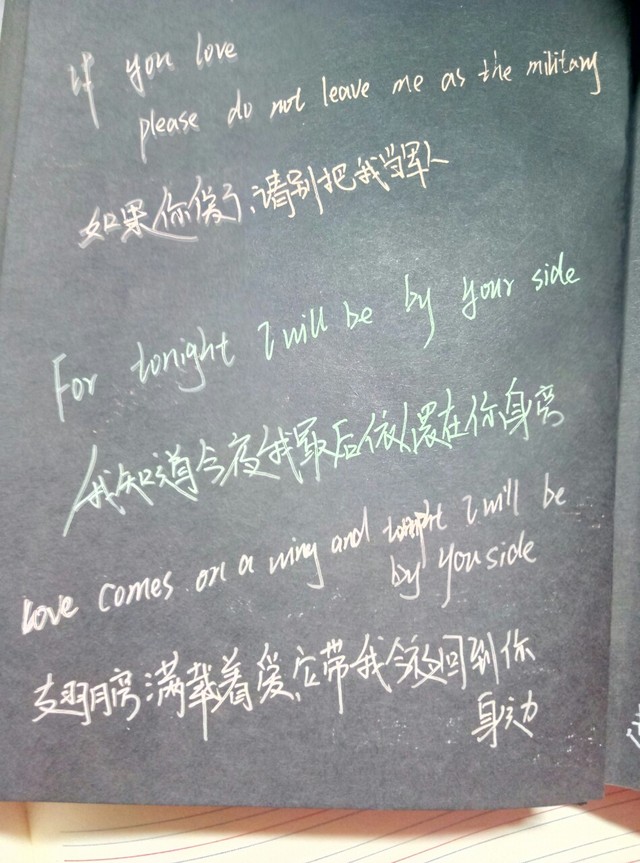 If you love
please do not leave me as the military
如果你倦了、请别把我当军人
For tonight I will be by your side
我知道今夜我最后依偎在你身旁
Love comes on a wing and tonight I will be
by you side
翅膀满载着爱,它带我今夜回到你
身边